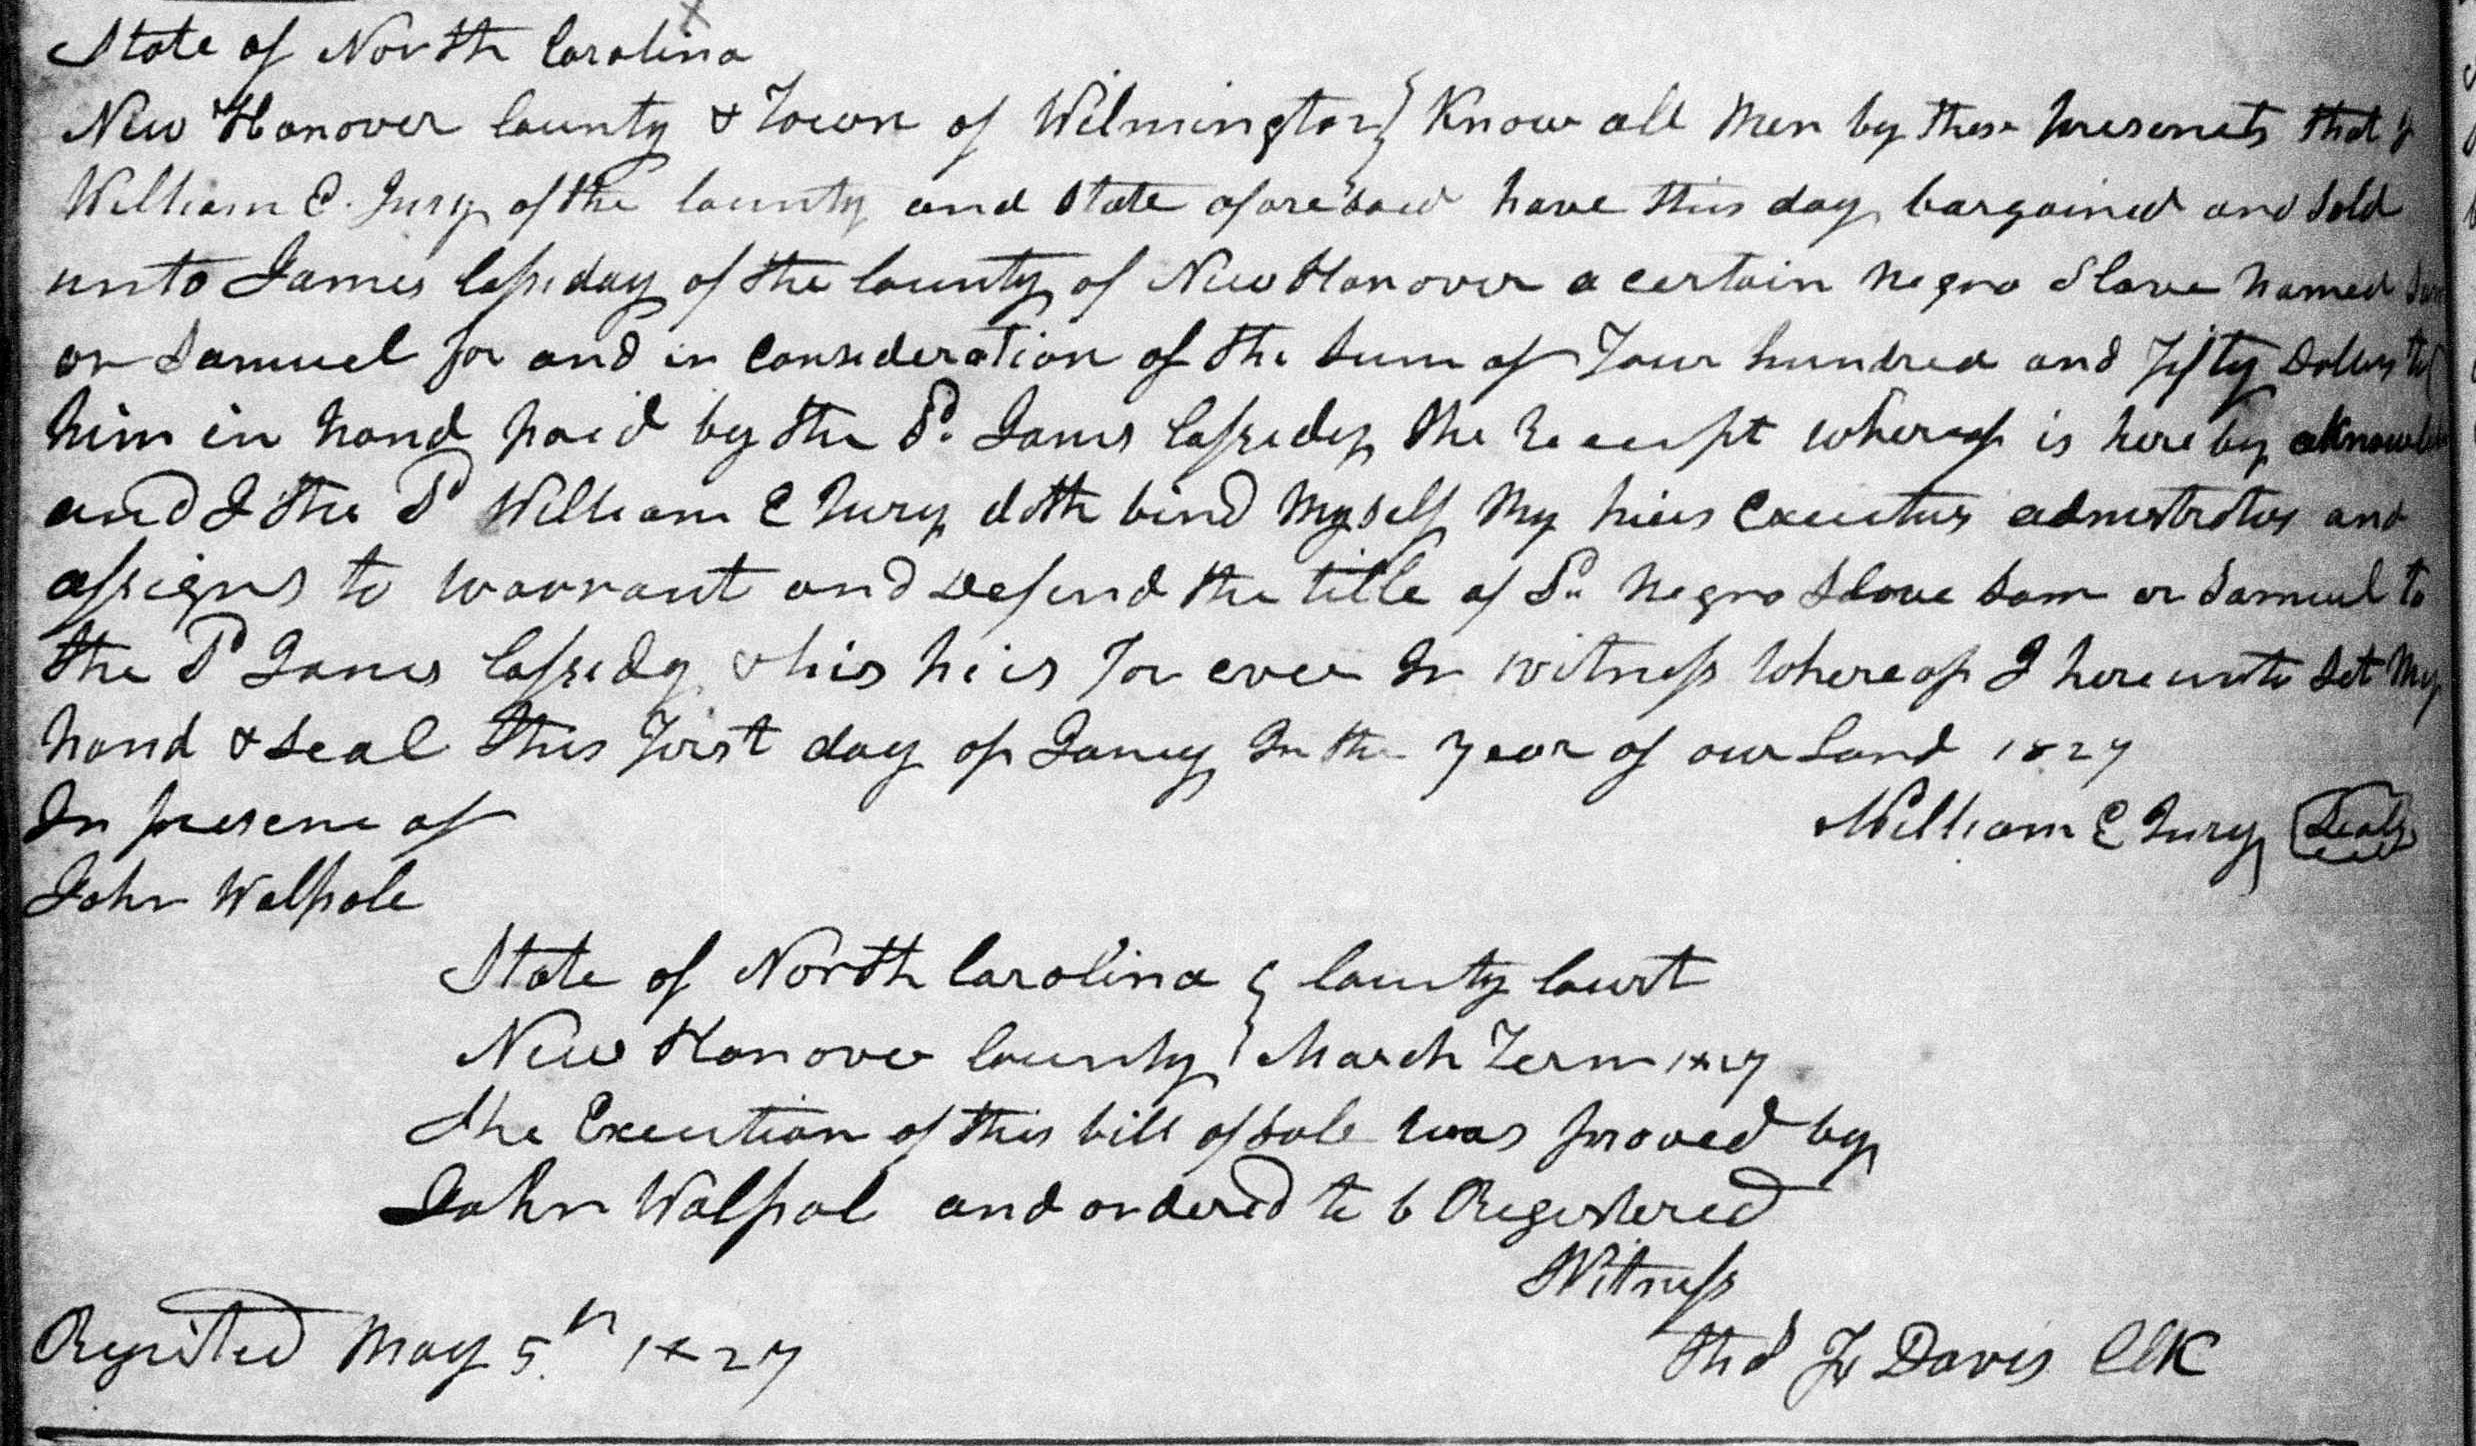 State of North Carolina
New Hanover County & Town of Wilmington } Know all Men by these presenets that I
William C. Jury of the County and State aforesaid have this day bargained and Sold
unto James Cassiday of the County of New Hanover a certain Negro Slave Named Sam
or Samuel for and in Consideration of the Sum of Four hundred and Fifty Dollars to
him in hand paid by the Sd. James Cassidy the Receipt whereof is here by
and I the Sd William C Jury doth bind Myself My hiers Executus admstrators and
assigns to warrant and Defend the title of Sd. Negro Slave Sam or Samuel to
the Sd James Cassidy & his hiers For ever In witness Whereof I here unto Set My
hand & Seal This First day of Jany In the year of our Lord 1827
In presene of
William C Jury Seal
John Walpole
State of North Carolina } County Court
New Hanover County } March Term 1827
The Execution of this bill of Sale was proved by
John Walpol and ordered to b Registered
Witness
Registed May 5th 1827
Thd Js Davis Clk